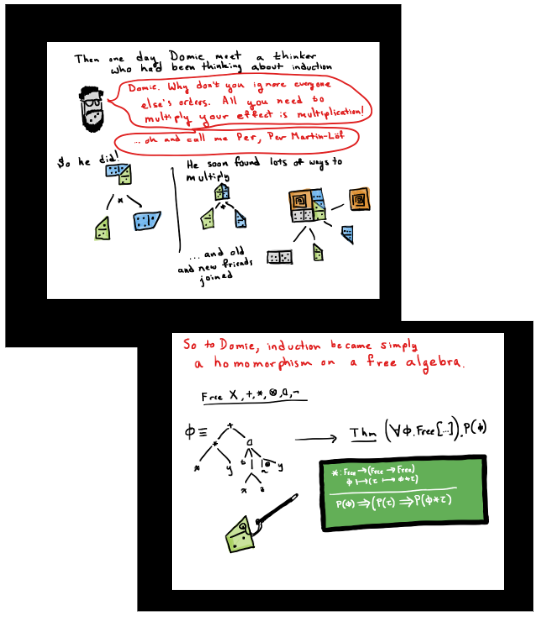 Then one day, Domie meet a thinker
who had been thinking about induction
Domie. Why don't you ignore everyone
else's orders. All you need to
multiply your effect is multiplication!
...oh and call me Per, Per Martin-Löf
So he did!
He soon found lots of ways to
multiply
*
+
... and old
and new friends
joined
So to Domie, induction became simply
a homomorphism on a free algebra.
Free X, +, *, ⊗, ¬
φ ≡
+
*
x y
y
x
Thm (∀φ.Free[...]).P(φ)
*: Free → (Free → Free)
φ ↦ (τ ↦ φ*τ)
P(φ) ⇒ (P(τ) ⇒ P(φ*τ)